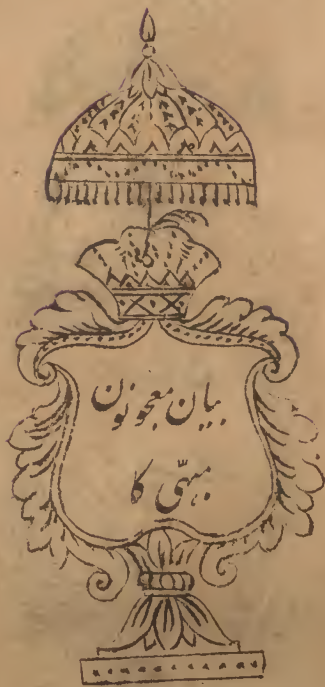 بیان معجونون
مبہّی کا